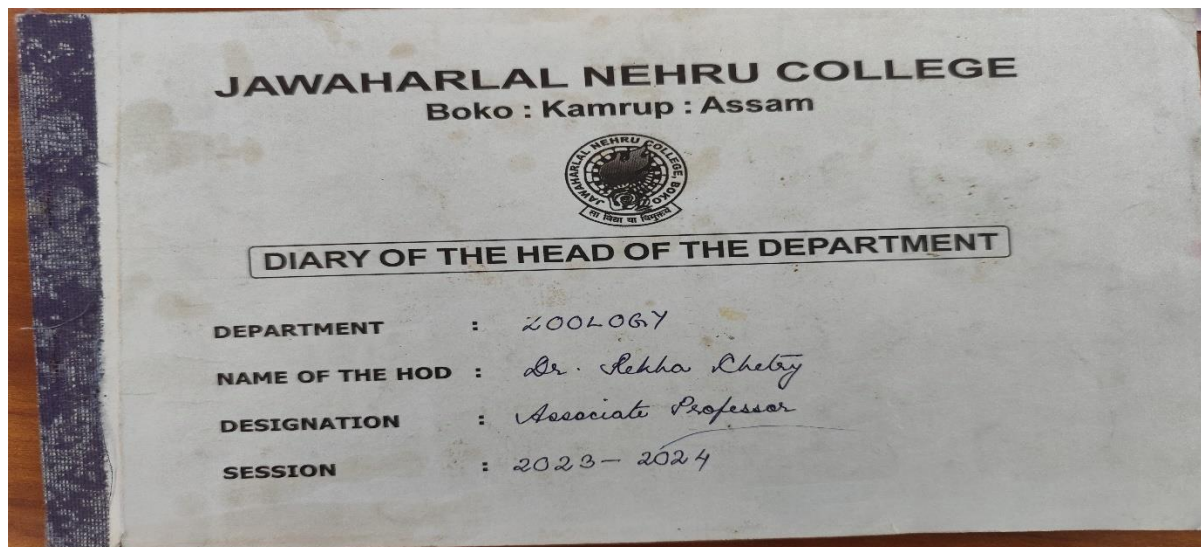 JAWAHARLAL NEHRU COLLEGE
Boko : Kamrup : Assam
JAWAHARLAL NEHRU COLLEGE, BOKO
सा विद्या या विमुक्तये
DIARY OF THE HEAD OF THE DEPARTMENT
DEPARTMENT : ZOOLOGY
NAME OF THE HOD : Dr. Rekha Chetry
DESIGNATION : Associate Professor
SESSION : 2023-2024